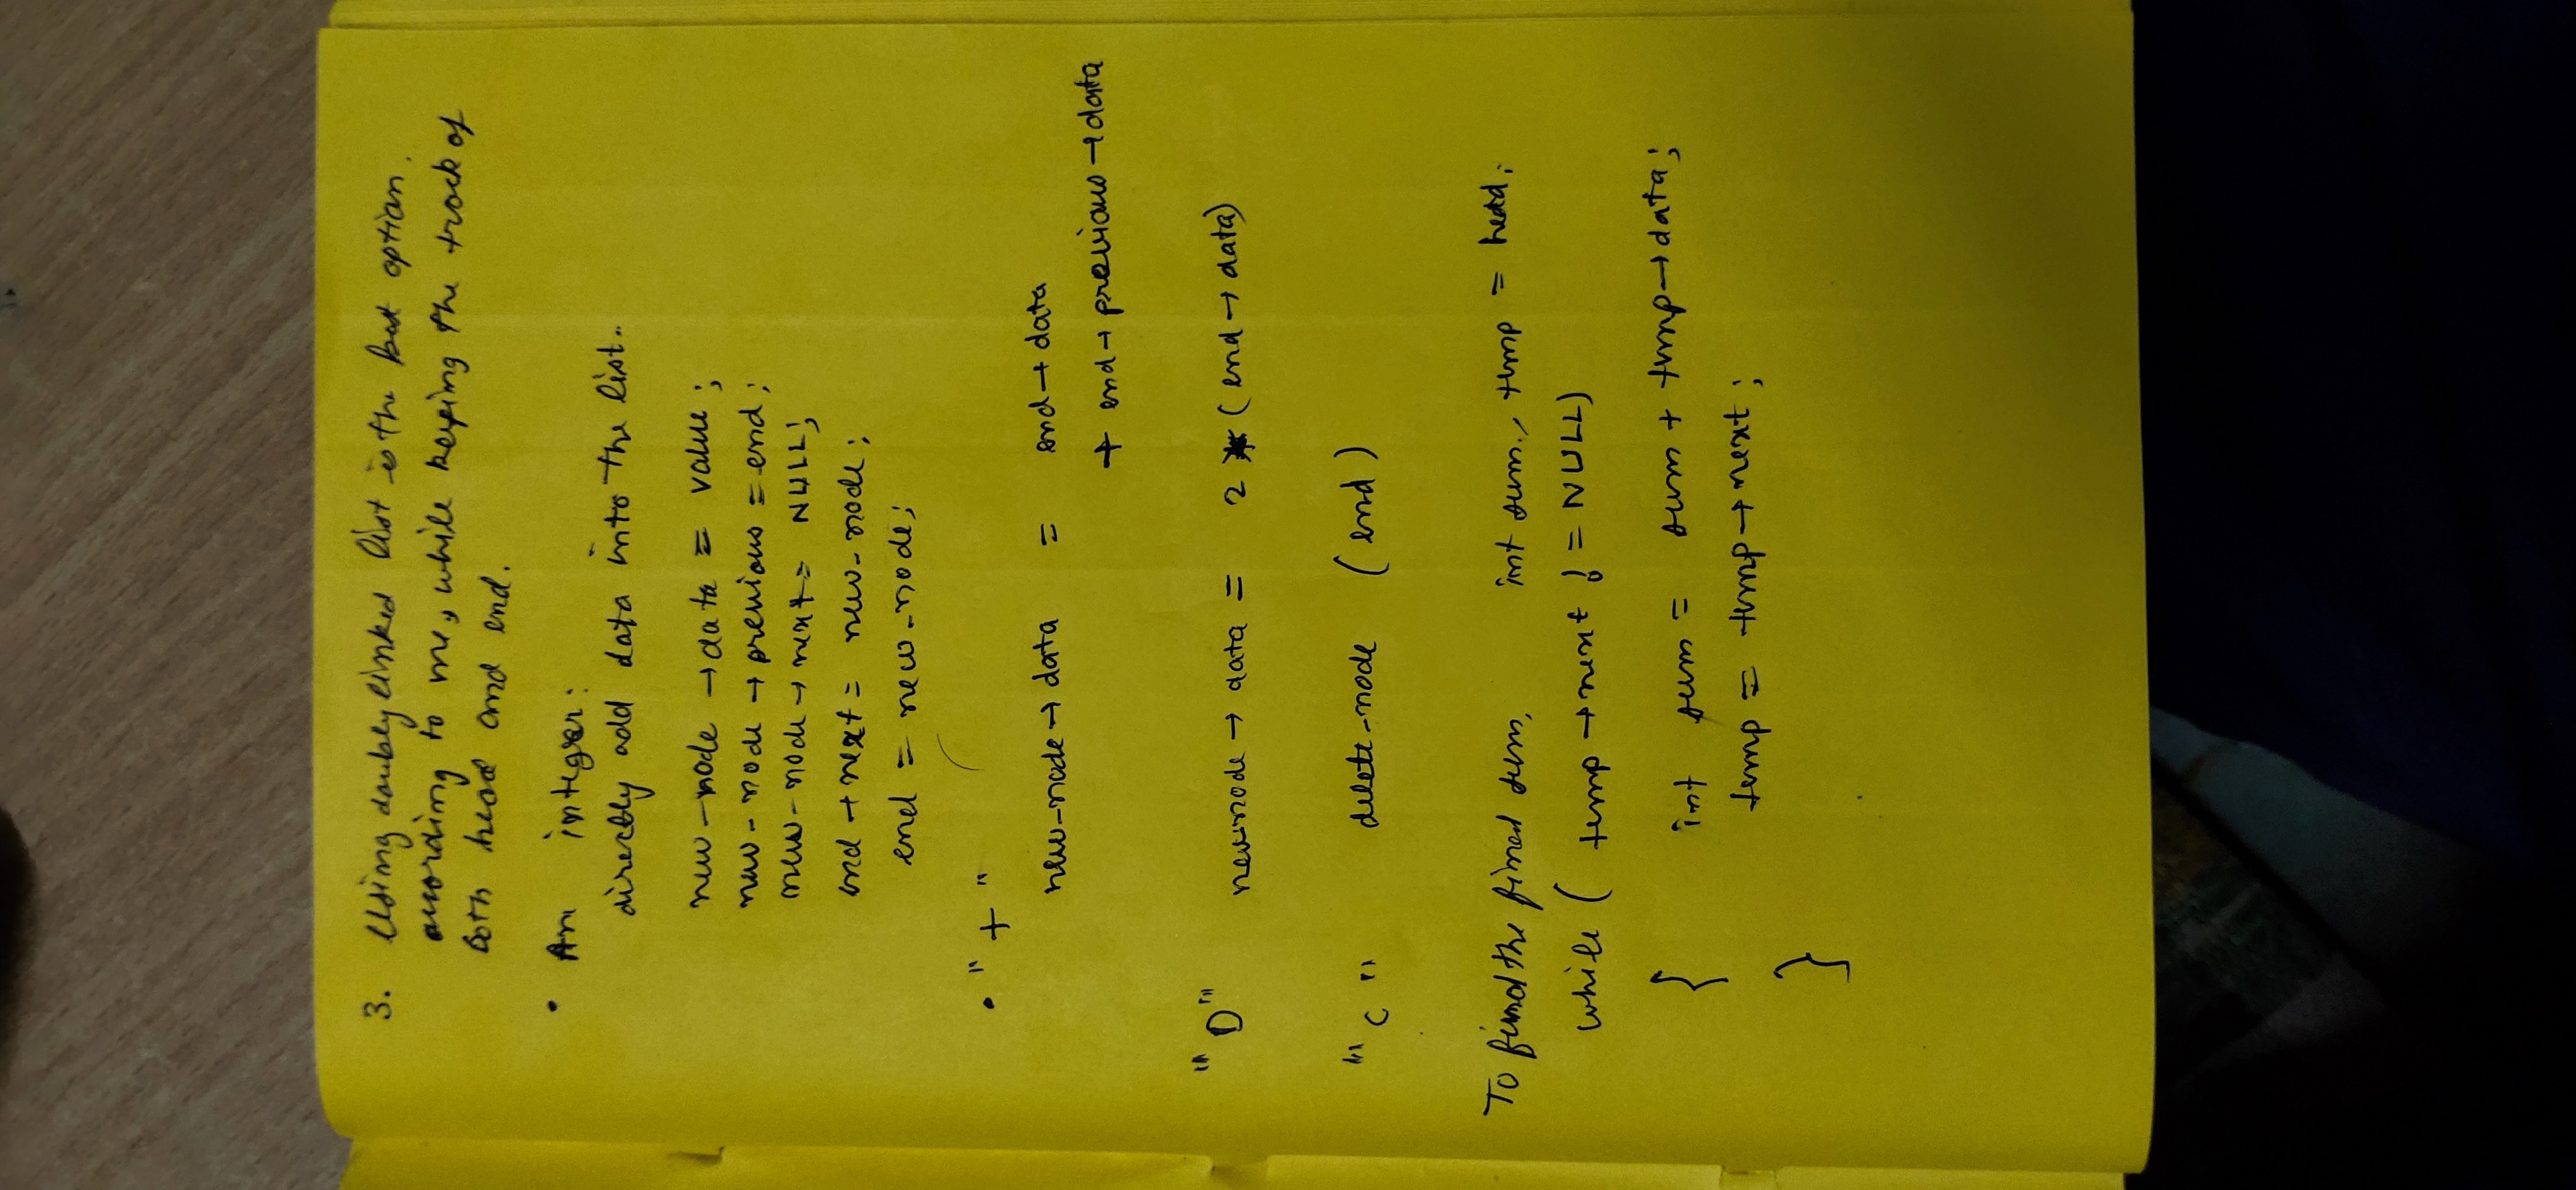 3. Using doubly linked list is the best option.
according to me, while keeping the track of
both head and end.
• An integer:
directly add data into the list..
new-node → data = value ;
new-node → previous = end ;
new-node → next = NULL ;
end → next = new-node ;
end = new-node ;
• "+"
new-node → data = end → data
+ end → previous → data
"D" newnode → data = 2 * (end → data)
"C" delete-node (end)
To find the final sum, int sum., temp = head ;
while ( temp → next != NULL)
{ int sum = sum + temp → data ;
temp = temp → next ;
}